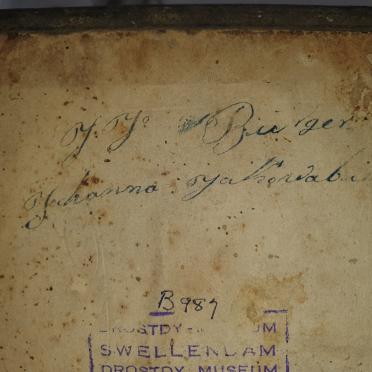 J. J. Burger
Johanna
B987
DROSTDY - M
SWELLENDAM
DROSTDY MUSEUM